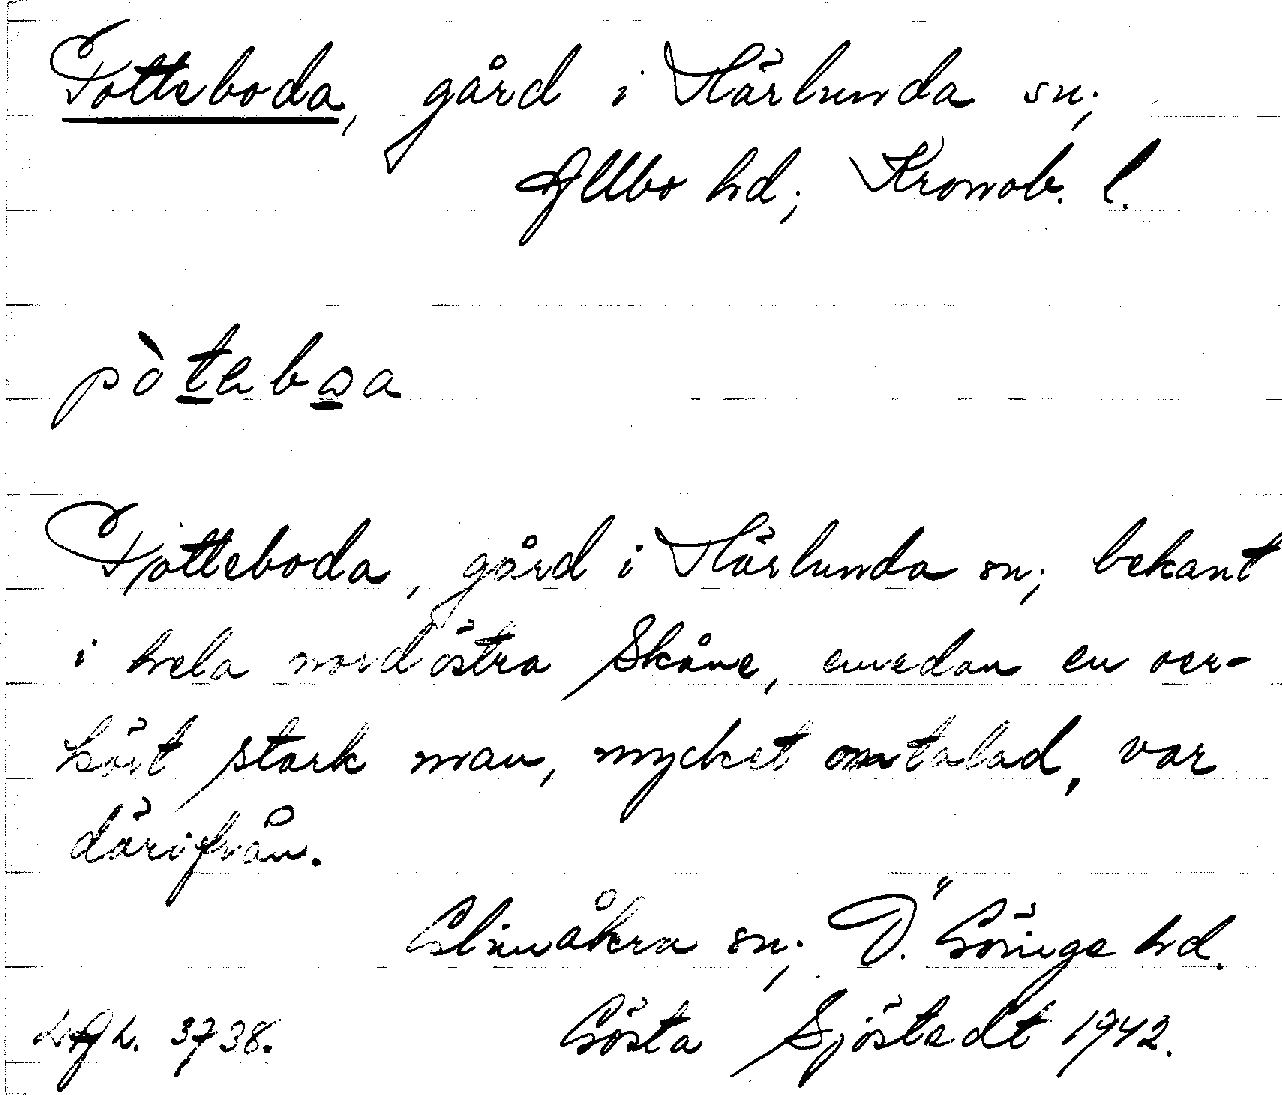 Potteboda, gård i Härlunda sn;
Allbo hd; Kronob. l.
pòteboa
Potteboda, gård i Härlunda sn; bekant
i hela nordöstra Skåne, emedan en oer-
hört stark man, mycket omtalad, var
därifrån.
Glimåkra sn; Ö. Göinge hd.
3738. Gösta Sjöstedt 1942.